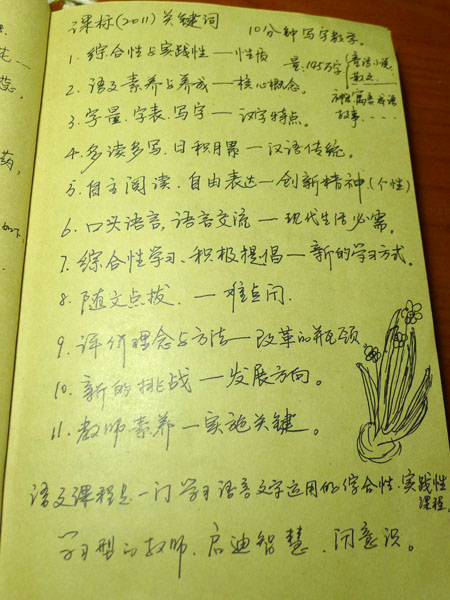 课标(2011)关键词
10分钟写字教学。
1. 综合性与实践性——性质
量:145万字
童话、小说、
散文、
神话寓言成语
故事、……
2. 语文素养与养成——核心概念。
3. 字量、字表、写字——汉字特点。
4. 多读多写、日积月累——汉语传统。
5. 自主阅读、自由表达——创新精神(个性)
6. 口头语言,语言交流——现代生活必需。
7. 综合性学习、积极提倡——新的学习方式。
8. 随文点拔、——难点问.
9. 评价理念与方法——改革的瓶颈
10. 新的挑战——发展方向。
11. 教师素养——实施关键。
语文课程是一门学习语言文字运用的综合性、实践性
课程.
学习型的教师、启迪智慧、问意识。